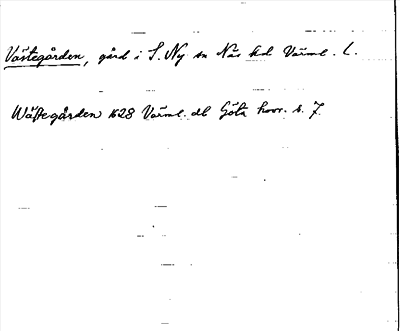 Västegården, gård i S. Ny sn Näs hd Värml. l.
Wästegården 1628 Värml. dl Göta hovr. s. 7.